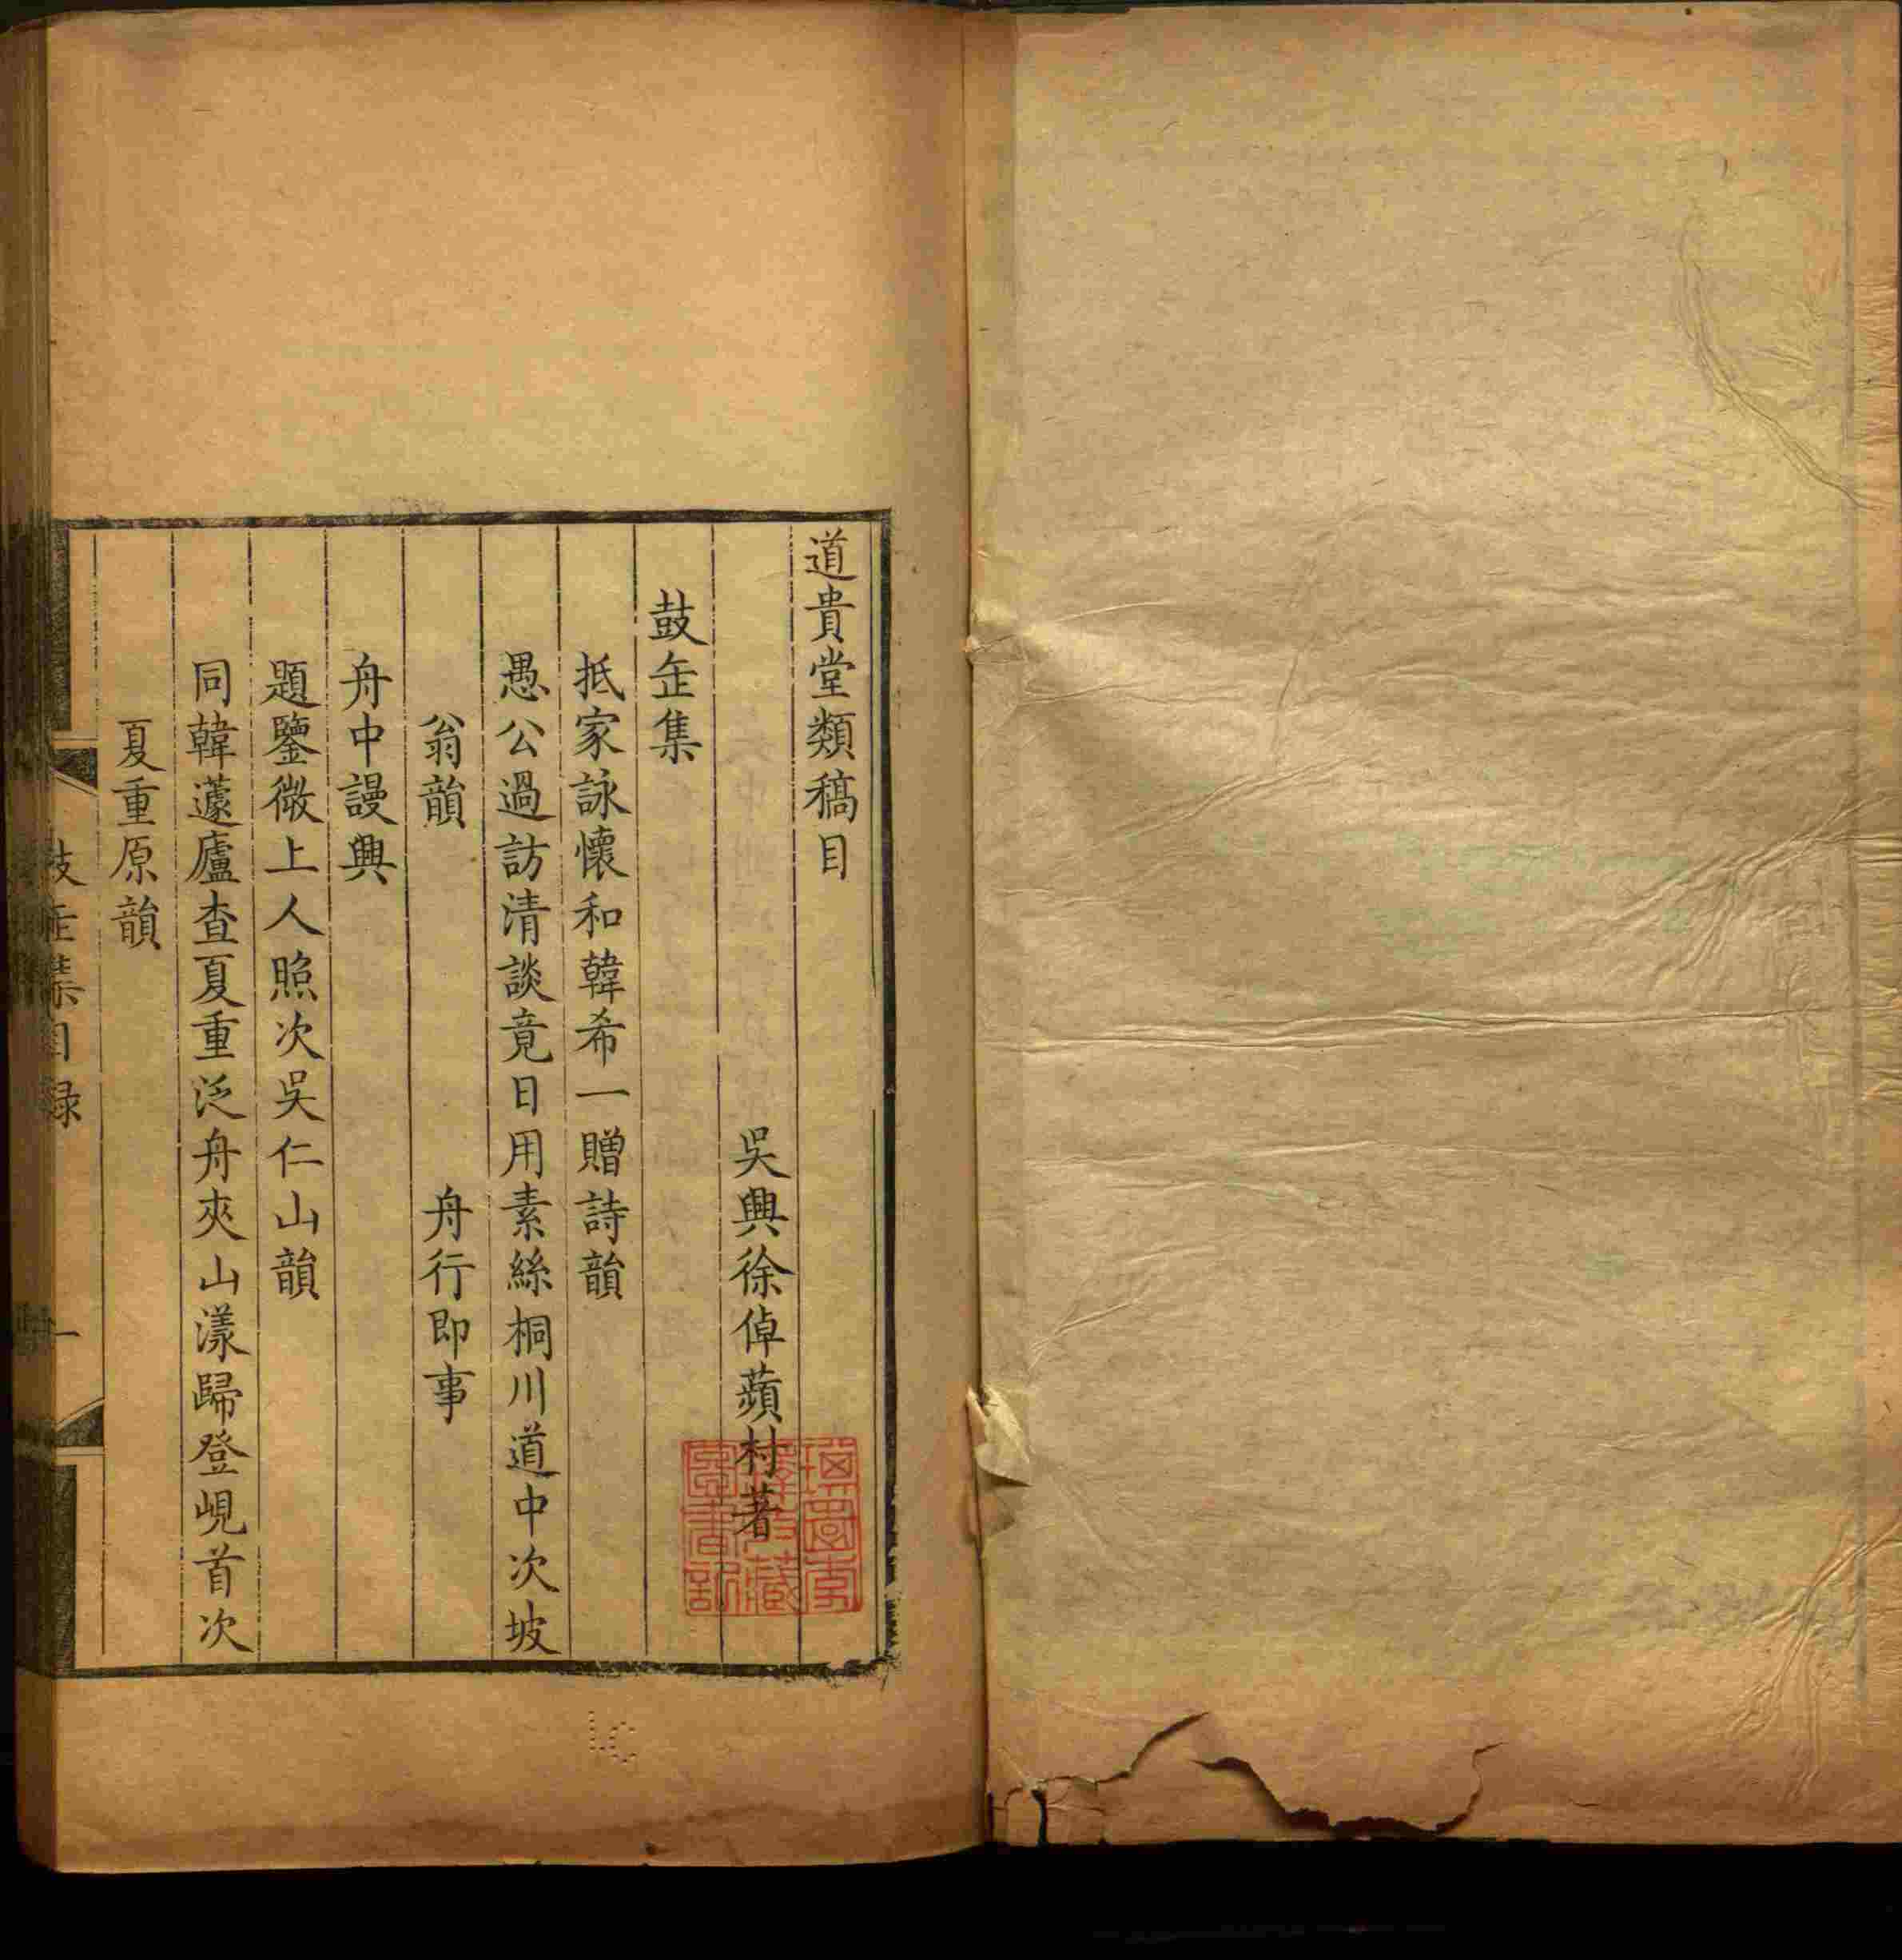 道貴堂類稿目
吳興徐倬蘋村著
鼓缶集
抵家詠懷和韓希一贈詩韻
愚公過訪清談竟日用素絲桐川道中次坡
翁韻 舟行即事
舟中謾興
題鑒微上人照次吳仁山韻
同韓蘧廬查夏重泛舟夾山漾歸登峴首次
夏重原韻
鼓缶集目錄 一
LC